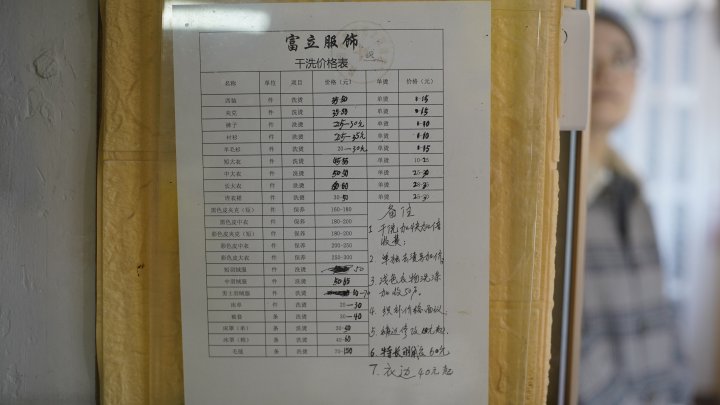 富立服饰
干洗价格表
名称 单位 项目 价格（元） 单烫 价格（元）
西装 件 洗烫 单烫
夹克 件 洗烫 单烫
裤子 件 洗烫 25-30元 单烫
衬衫 件 洗烫 25-35元 单烫
羊毛衫 件 洗烫 20-30元 单烫
短大衣 件 洗烫 单烫 10-20
中大衣 件 洗烫 单烫
长大衣 件 洗烫 单烫
连衣裙 件 洗烫 30-50 单烫
黑色皮夹克（短） 件 保养 160-180
黑色皮中衣 件 保养 180-200
彩色皮夹克（短） 件 保养 180-200
彩色皮中衣 件 保养 200-250
彩色皮大衣 件 保养 250-300
短羽绒服 件 洗烫 50
中羽绒服 件 洗烫
男士羽绒服 件 洗烫
床单 件 洗烫 20-30
被套 条 洗烫 30-40
床罩（单） 条 洗烫 30-50
床罩（棉） 条 洗烫 40-60
毛毯 条 洗烫
备注
1 干洗加快加倍
收费；
2 单独去渍另加价
3 浅色衣物洗涤
加收50%
4. 织补价格面议
5
6. 60元
7. 衣边 40元起